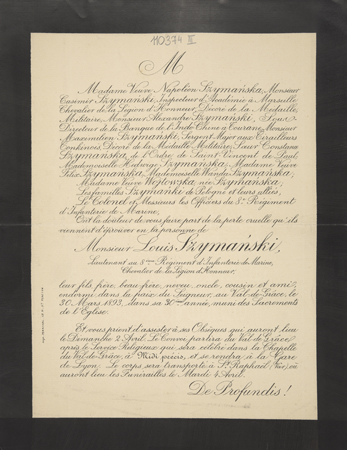 110374 II
M
Madame Veuve Napoléon Szymańska, Monsieur
Casimir Szymański, Inspecteur d'Académie à Marseille,
Chevalier de la Légion d'Honneur, Décoré de la Médaille
Militaire, Monsieur Alexandre Szymański, Sous-
Directeur de la Banque de l'Indo-Chine à Tourane, Monsieur
Maximilien Szymański, Sergent Major aux Tirailleurs
Tonkinois, Décoré de la Médaille Militaire, Sœur Constance
Szymańska, de l'Ordre de Saint Vincent de Paul,
Mademoiselle Hedwige Szymańska, Madame Veuve
Félix Szymańska, Mademoiselle Wanda Szymańska,
Madame Veuve née Szymańska,
Les familles Szymański de Pologne et leurs alliés,
Le Colonel et Messieurs les Officiers du 8e Régiment
d'Infanterie de Marine,
Ont la douleur de vous faire part de la perte cruelle qu'ils
viennent d'éprouver en la personne de
Monsieur Louis Szymański,
Lieutenant au 8ème Régiment d'Infanterie de Marine,
Chevalier de la Légion d'Honneur,
leur fils, frère, beau-frère, neveu, oncle, cousin et ami,
endormi dans la paix du Seigneur, au Val-de-Grâce, le
30 Mars 1893, dans sa 30e année, muni des Sacrements
de l'Eglise.
Et vous prient d'assister à ses Obsèques qui auront lieu
le Dimanche 2 Avril. Le Convoi partira du Val-de-Grâce
après le Service Religieux qui sera célébré dans la Chapelle
du Val-de-Grâce, à Midi précis, et se rendra à la Gare
de Lyon. Le corps sera transporté à St Raphaël (Var), où
auront lieu les Funérailles le Mardi 4 Avril.
De Profundis!